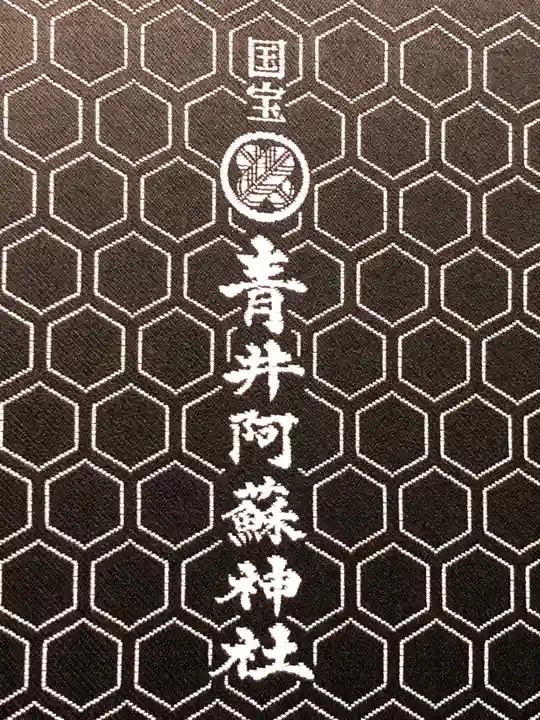 国宝
青井阿蘇神社